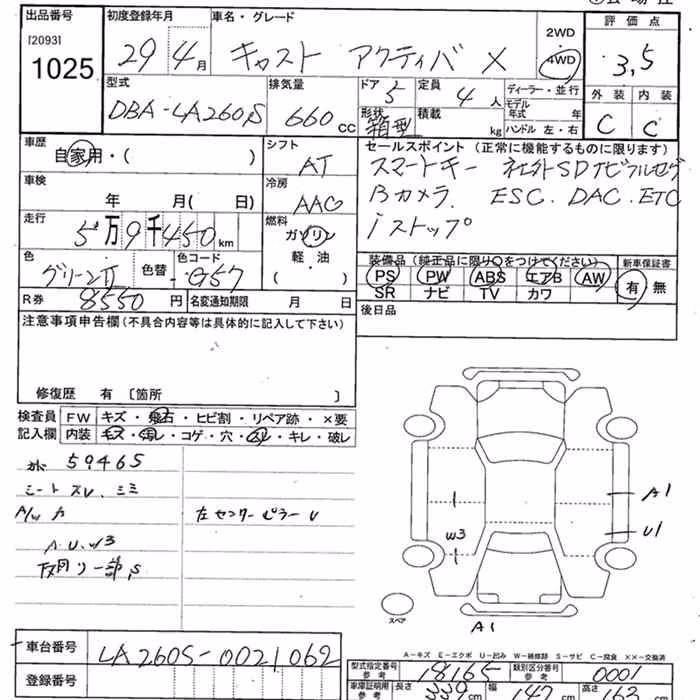 出品番号 初度登録年月 車名・グレード 2WD 評価点
[2093] 29 4月 キャスト アクティバ X 4WD 3,5
1025 型式 排気量 ドア 定員 ディーラー・並行 外装 内装
DBA-LA260S 660cc 5 4人 モデル年式 年 C C
形状 箱型 積載 kg ハンドル 左・右
車歴 シフト セールスポイント (正常に機能するものに限ります)
自家用・( ) AT スマートキー 社外SDナビフルセグ
車検 冷房 Bカメラ. ESC. DAC. ETC
年 月( 日) AAC iストップ
走行 燃料
5万9千450km ガソリン
色 色替 色コード 軽・油 装備品(純正品に限り○をつけてください) 新車保証書
グリーンII G57 ( ) PS PW ABS エアB AW 有 無
R券 8550円 名変通知期限 月 日 SR ナビ TV カワ
注意事項申告欄(不具合内容等は具体的に記入して下さい) 後日品
修復歴 有 〔箇所 〕
検査員 FW キズ・飛石・ヒビ割・リペア跡・×要
記入欄 内装 キズ・汚レ・コゲ・穴・凹レ・キレ・破レ
59465
シートスレ、シミ A1
A/W カ 左センターピラーU U1
A.U.W3 W3
下廻り一部S
スペア
A1
A-キズ E-エクボ U-凹み W-補修跡 S-サビ C-腐食 ××-交換済
車台番号 LA260S-0021062 型式指定番号 参考 18165 類別区分番号 参考 0001
登録番号 車庫証明用 参考 長さ 339cm 幅 147cm 高さ 163cm